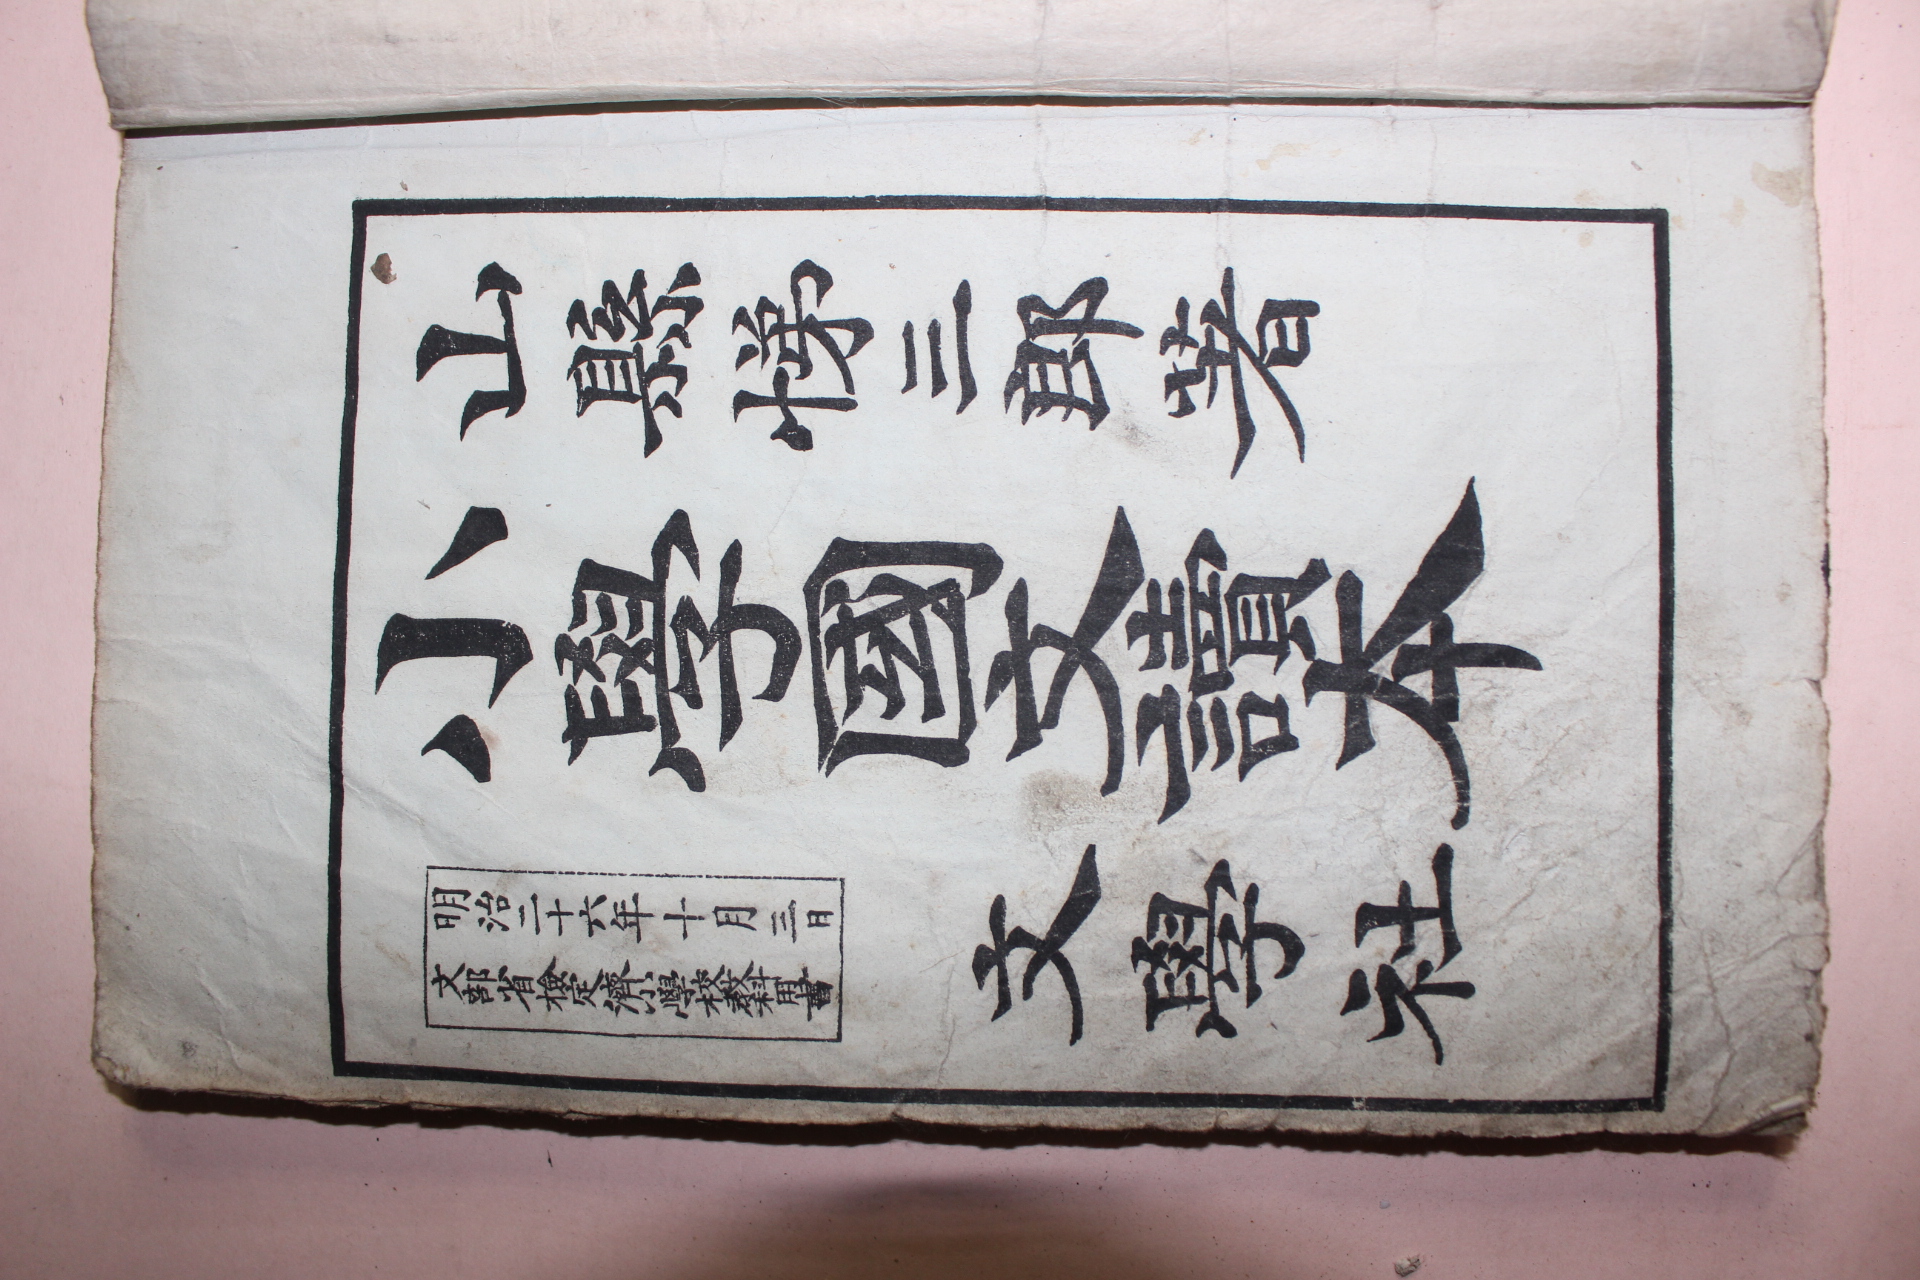 山縣悌三郎著
小學國文讀本
明治二十六年十月三日
文部省檢定濟小學校教科用書
文學社